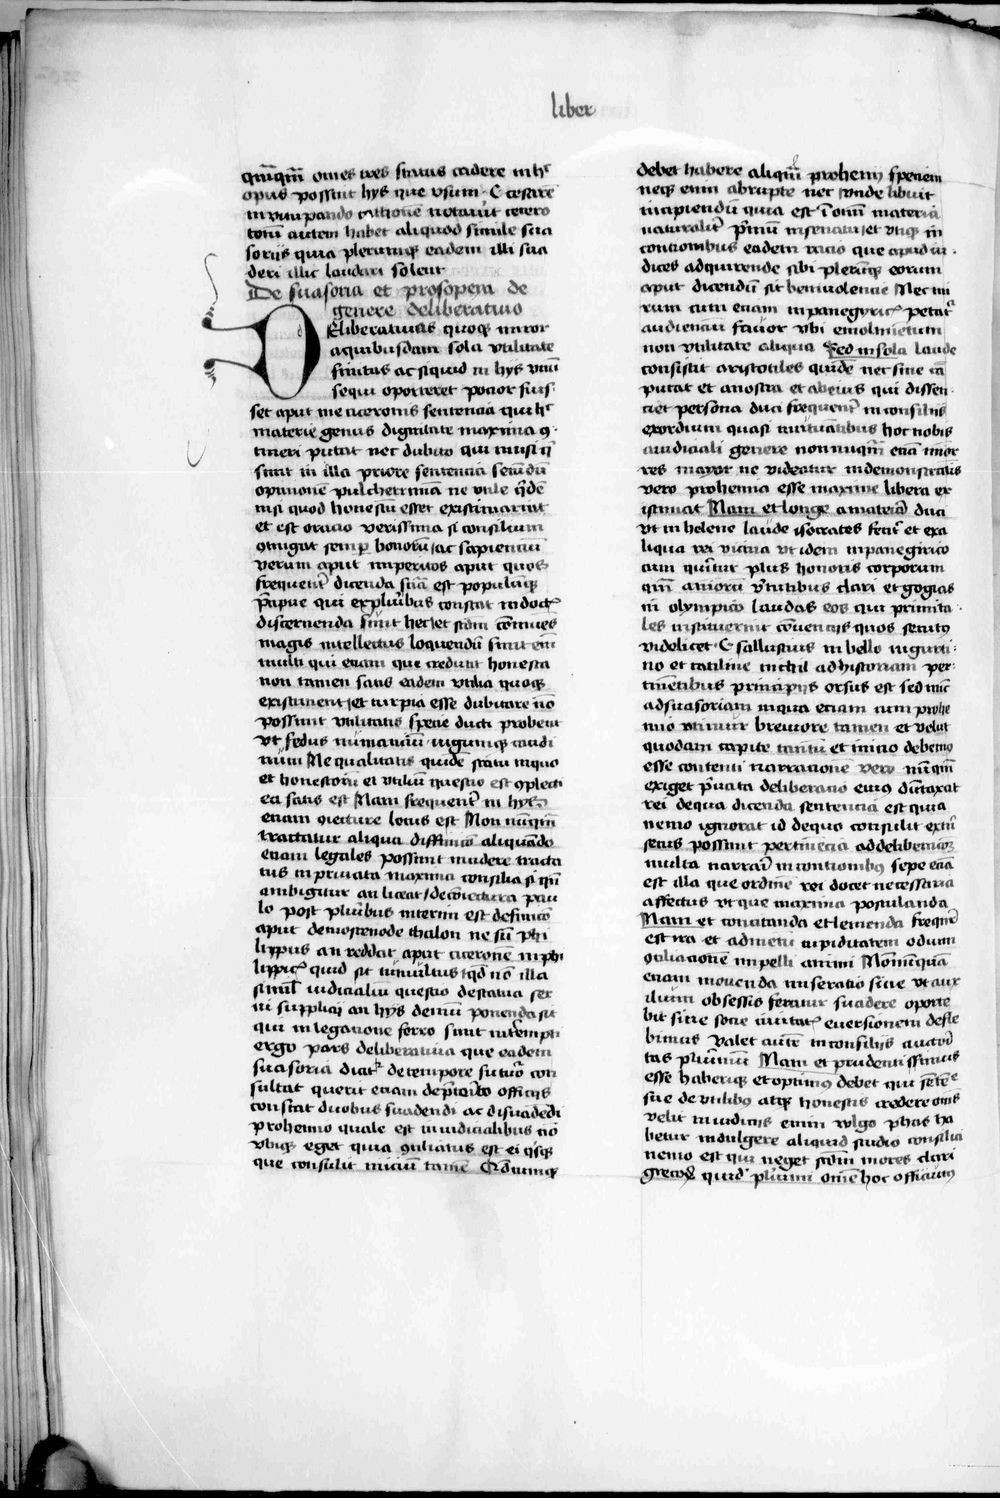 liber
quāqm̄ om̄es tres status cadere in hͦ
opus possint hys que usum · C cesare
in vitupando
totū autem habet aliquod simile sua
sorijs quia plerumqꝫ eadem illi sua
deri illic laudari solent
De suasoria et prosopeia de
genere deliberativo
DEliberativas quoqꝫ miror
a quibusdam sola utilitate
finitas ac siquid in hys unū
sequi oporteret potior fuis
set aput me ciceronis sententia qui hͦ
materie genus dignitate maxima ꝯ
tineri putat nec dubito qui
sint in illa priore sententia secūdū
opinionē pulcherrimā ne utile q̄dē
nisi quod honestū esset existimarint
et est oratio verissima si consilium
ꝯtingat semp̄ bonorū ac sapientiū
verum aput imperitos aput quos
frequent̄ dicenda s̄nīa est populūqꝫ
p̄cipue qui ex pluribus constat indoctꝭ
discernenda sūt hec et scdm cōmunes
magis intellectus loquendū sunt eīm
multi qui etiam que credunt honesta
non tamen satis eadem utilia quoqꝫ
existiment et turpia esse dubitare nō
possunt utilitatis specie ducti probent
ut fedus numantinū iugumqꝫ caudi
num Ne qualitatis quidē statu in quo
et honestorū et utiliū questio est ꝯplecti
ea satis est Nam frequent̄ in hys
etiam ꝯiecture locus est Non nūqm̄
tractatur aliqua diffinicō aliquādo
etiam legales possunt incidere tracta
tus in privata maxima consilia si qn̄
ambigitur an liceat / de cōiectura pau
lo post pluribus interim est definicō
aput demostenē de thalon ne sūt phi
lippus an reddat aput ciceronē in phi
lippicꝭ quid sit tumultus qd nō illa
simil̄ iudicialiū questio de statua ser
vi suplicij an hys demū ponenda sit
qui in legatione ferro sunt interempti
ergo pars deliberativa que eadem
suasoria dicit̄ de tempore futuro con
sultat querit etiam de p̄terito officiis
constat duobus suadendi ac disuadēdi
prohemio quale est in iudicialibus nō
ubiqꝫ eget quia ꝯciliatus est ei q̄sqꝫ
que consulit inicium tamē
debet habere aliquā prohemij speciem
neqꝫ enim abrupte nec unde libuit
incipiendū quia est ī omī materia
naturalit̄ p̄mum in senatu et utiqꝫ in
contionibus eadem racio que apud iu·
dices adquirende sibi plerūqꝫ eorum
aput dicendū sit benivolentie Nec mi
rum cum etiam in panegyricꝭ petat̄
audientiū favor ubi emolumētum
non utilitate aliqua Sed in sola laude
consistit aristotiles quidē nec sine cā
putat et a nostra et ab eius qui dissen·
ciet persona duci frequent̄ in consiliis
exordium quasi mutuātibus hoc nobis
a iudiciali genere nonnunqm̄ etiā minor
res mayor ne videatur in demonstratiis
vero prohemia esse maxime libera ex
istimat Nam et longe a materia duci
ut in helene laude isocrates fecit et exa
liqua rei vicina ut idem in panegirico
cum querit̄ plus honoris corporum
qm̄ animorū v̄tutibus dari et gogias
in olympico laudās eos qui primita·
les instituerunt cōventus quos secutꝯ
videlicet C sallustius in bello iugurti·
no et catiline nichil ad historiam per·
tinētibus principijs orsus est sed nūc
ad suasoriam in qua etiam cum prohe
mio utimur breviore tamen et velut
quodam capite tantū et inicio debemꝯ
esse contenti narracionē vero nūqm̄
exiget p̄vata deliberatio eiꝯ dūtaxat
rei de qua dicenda sententia est quia
nemo ignorat id de quo consulit extr̄
secus possunt pertinētia ad deliberationē
multa narrari in contionibꝯ sepe etiā
est illa que ordinē rei docet necessaria
affectus ut que maxima postulanda
Nam et concitanda et lenienda frequēt̄
est ira et ad metū cupiditatem odium
ꝯciliationē impelli animi Nonnūquā
etiam movenda miseratio sive ut aux
ilium obsessis feratur suadere oporte
bit sive socie civitatꝭ eversionem defle
bimus Valet autē in consiliis auctori
tas plurimū Nam et prudentissimus
esse haberiqꝫ et optimꝯ debet qui sētē
sue de utilibꝯ atqꝫ honestis credere oms
velit in iudiciis enim vulgo phas ha
betur indulgere aliquid studio consilia
nemo est qui neget scdm mores dari
grecoꝝ quid plurimi omē hoc officium